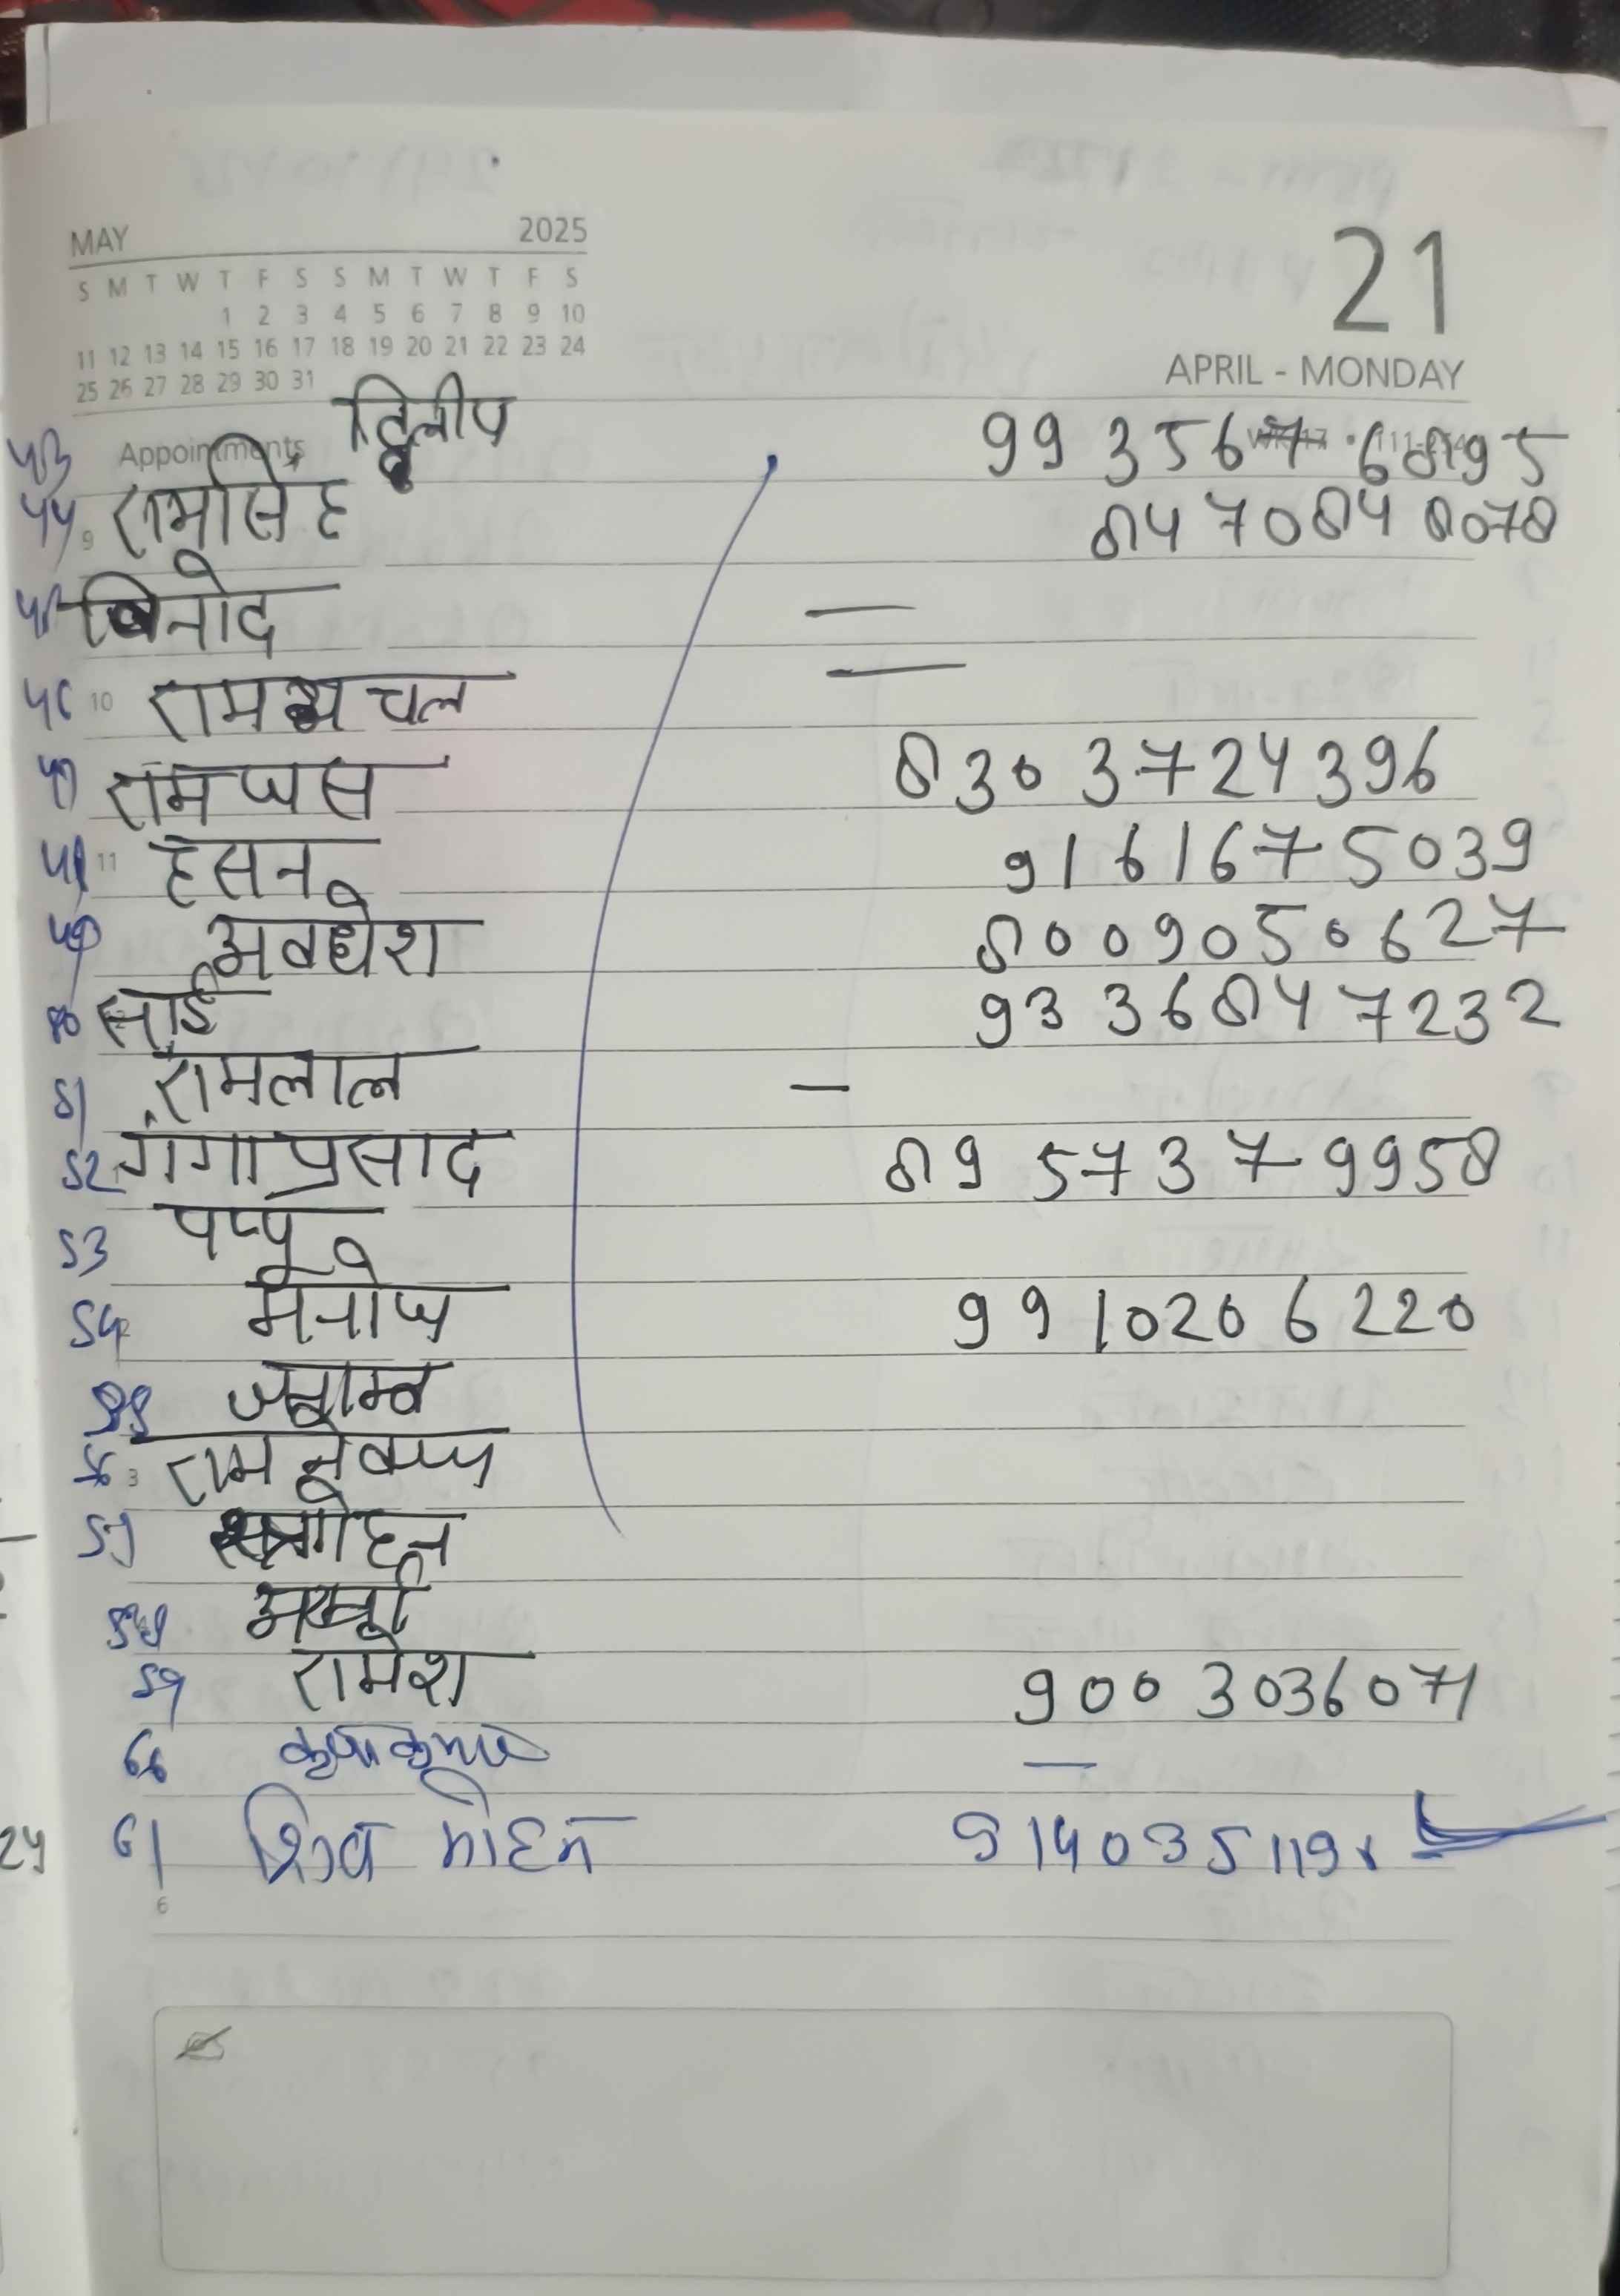 MAY 2025
S M T W T F S S M T W T F S
1 2 3 4 5 6 7 8 9 10
11 12 13 14 15 16 17 18 19 20 21 22 23 24
25 26 27 28 29 30 31
21
APRIL - MONDAY
Appointments
43 दिलीप 9935676895
44 9 रामसिंह 8470848078
45 विनोद —
46 10 रामअचल —
47 रामजस 8303724396
48 11 हसन 9161675039
49 अवधेश 8009050627
50 साई 9336847232
51 रामलाल —
52 गंगाप्रसाद 8957379958
53 पप्पू
54 मनोज 9910206220
55
56 3 राम
57
58
59 रामेश 9003036071
60 —
61 शिव मोहन 914035119
6
24